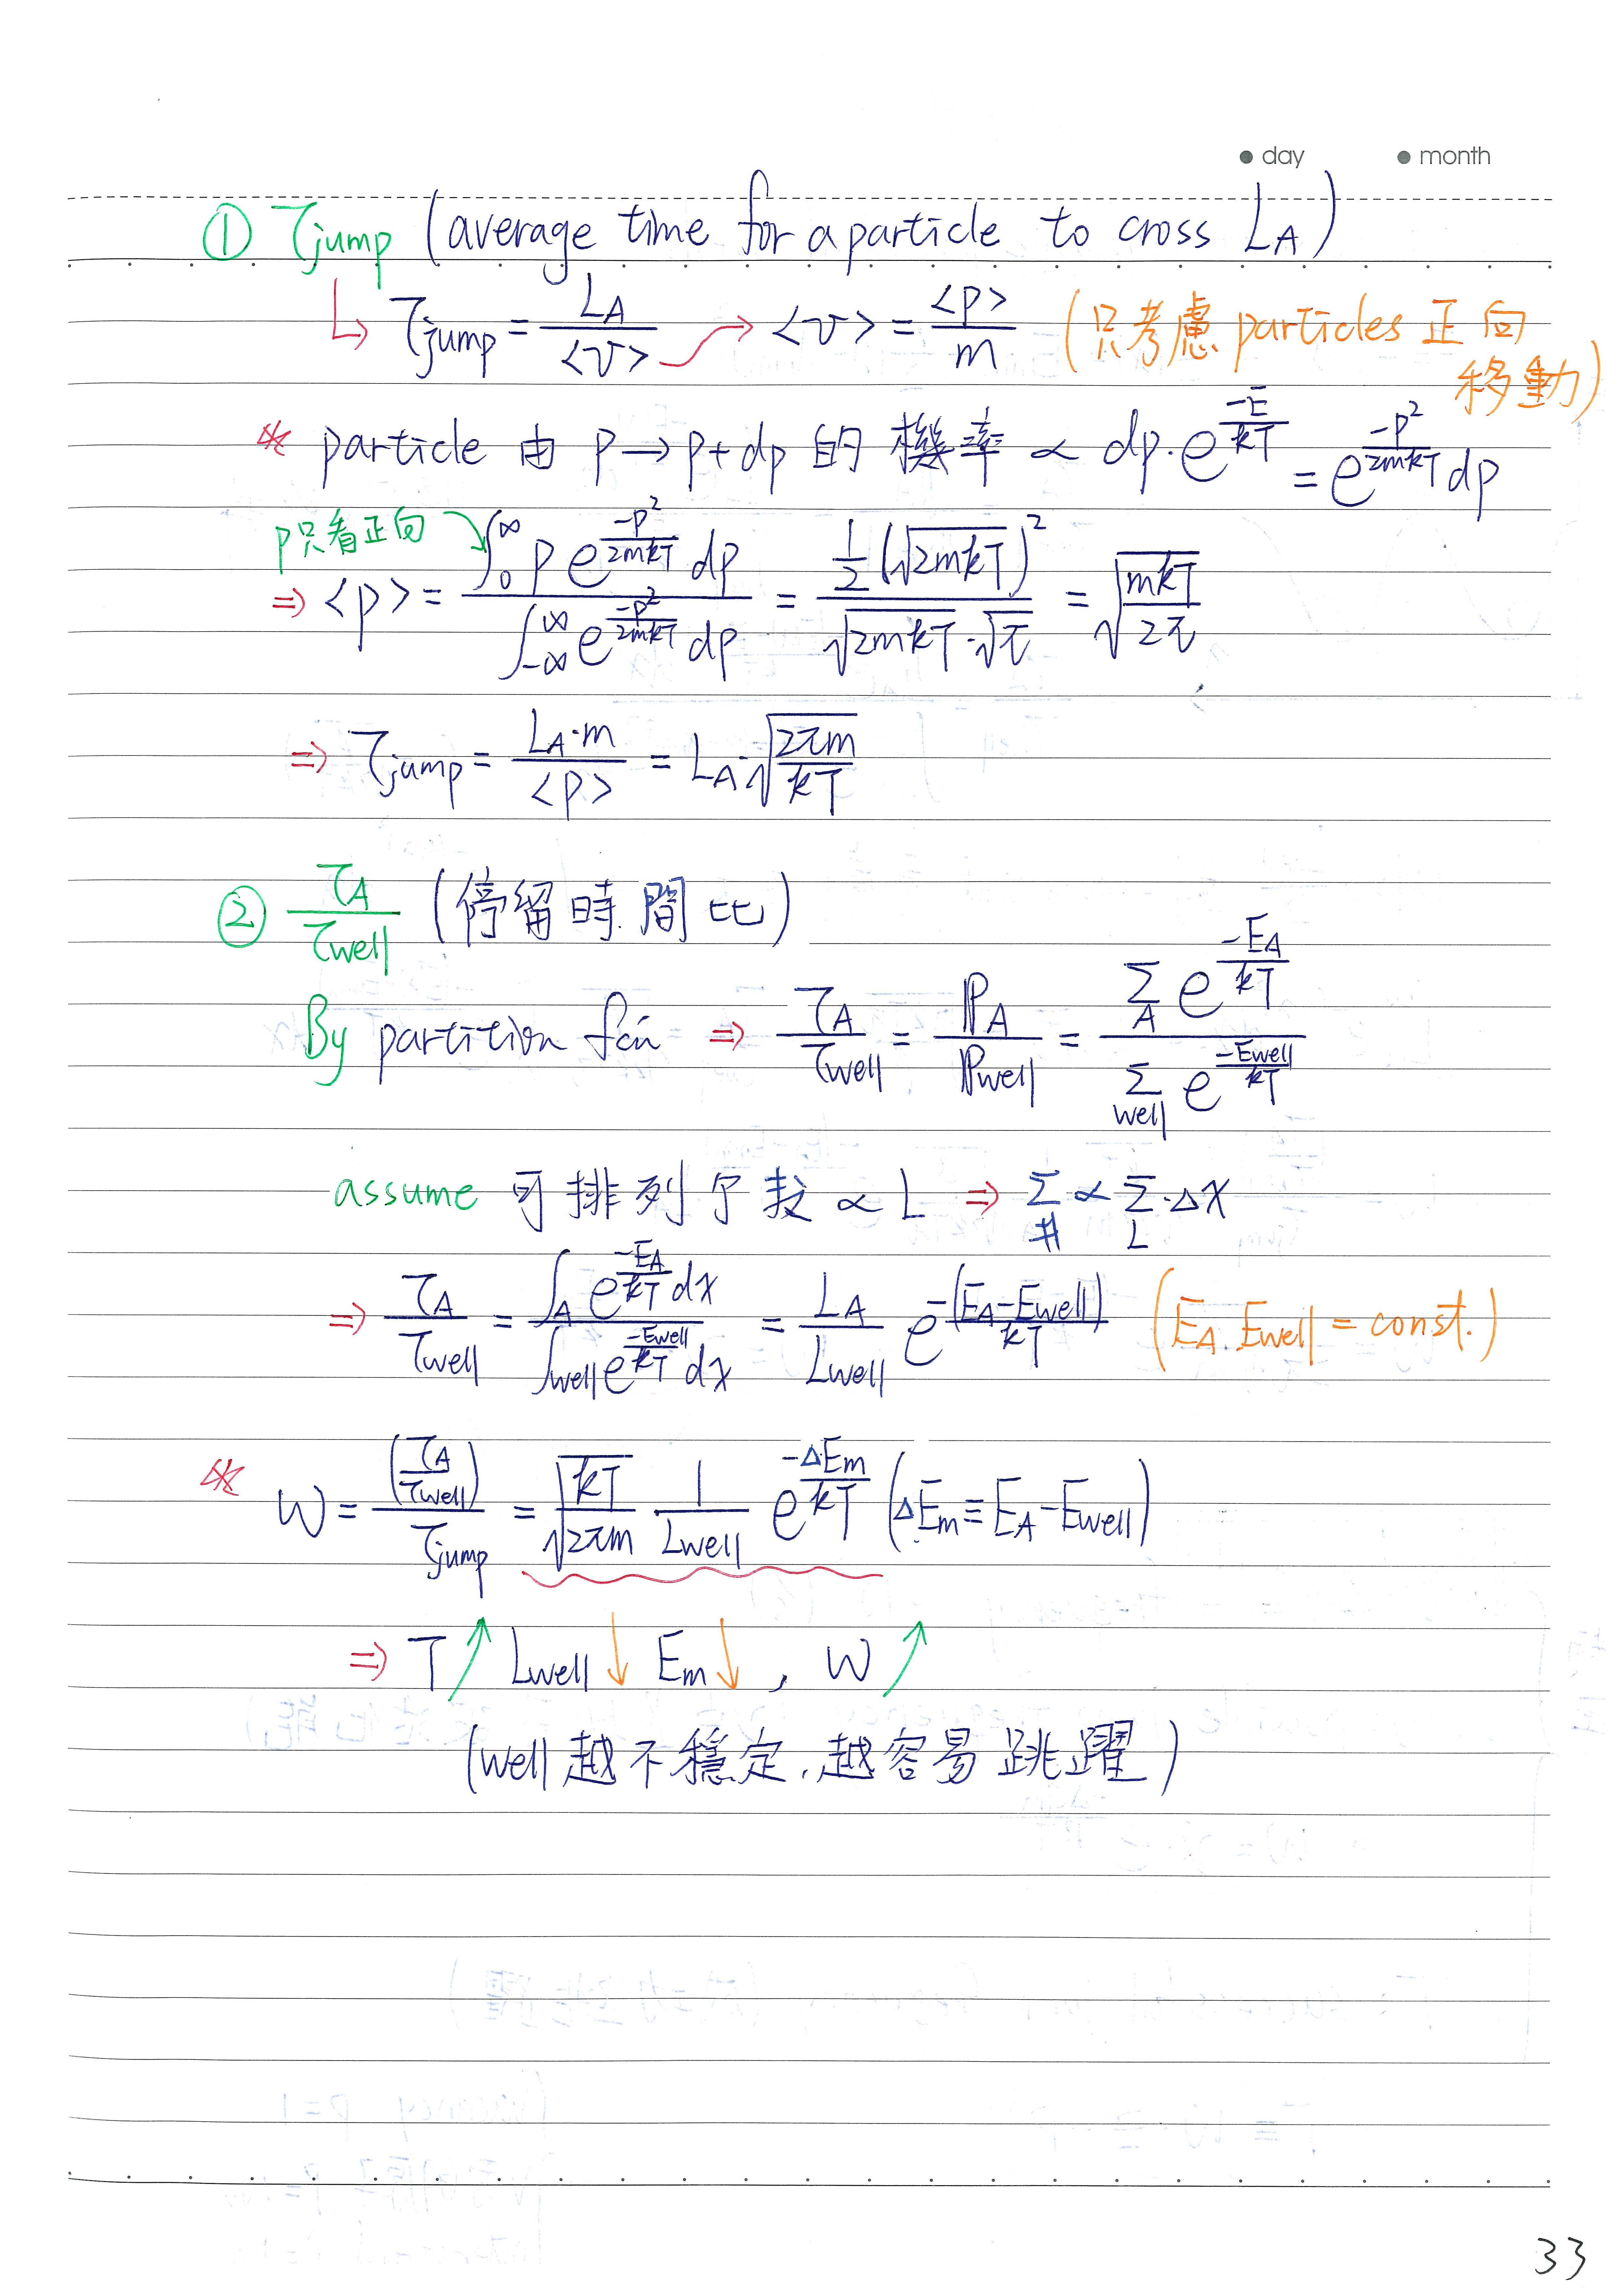 ● day ● month
① τjump (average time for a particle to cross L_A)
↳ τjump = L_A / <v> → <v> = <p> / m (只考慮 particles 正向移動)
※ particle 由 p → p+dp 的 機率 ∝ dp·e^(-E/kT) = e^(-p²/2mkT) dp
p只看正向
⇒ <p> = ∫_0^∞ p e^(-p²/2mkT) dp / ∫_-∞^∞ e^(-p²/2mkT) dp = ½(√2mkT)² / (√2mkT·√π) = √(mkT/2π)
⇒ τjump = L_A·m / <p> = L_A·√(2πm/kT)
② τ_A/τwell (停留時間比)
By partition fcn ⇒ τ_A/τwell = P_A/Pwell = Σ_A e^(-E_A/kT) / Σ_well e^(-Ewell/kT)
assume 可排列个数 ∝ L ⇒ Σ_# ∝ Σ_L·Δx
⇒ τ_A/τwell = ∫_A e^(-E_A/kT) dx / ∫_well e^(-Ewell/kT) dx = L_A/Lwell e^(-(E_A-Ewell)/kT) (E_A. Ewell = const.)
※ W = (τ_A/τwell) / τjump = √kT/√2πm 1/Lwell e^(-ΔEm/kT) (ΔEm ≡ E_A - Ewell)
⇒ T↗ Lwell↓ Em↓, W↗
(well 越不穩定.越容易跳躍)
33